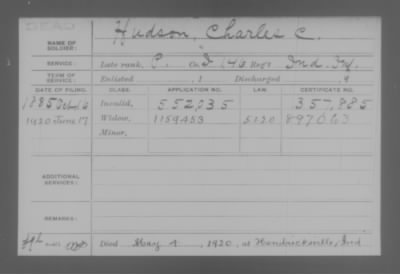 DEAD
NAME OF SOLDIER: Hudson, Charles C.
SERVICE: Late rank, P. Co. D 146 Reg't Ind. Inf.
TERM OF SERVICE: Enlisted , 1 Discharged , 9
DATE OF FILING. CLASS. APPLICATION NO. LAW. CERTIFICATE NO.
1885 Oct 16 Invalid, 552,035 357,885
1920 June 17 Widow, 1159453 5120 897063
Minor,
ADDITIONAL SERVICES:
REMARKS:
Died May 4, 1920, at Hendricksville, Ind